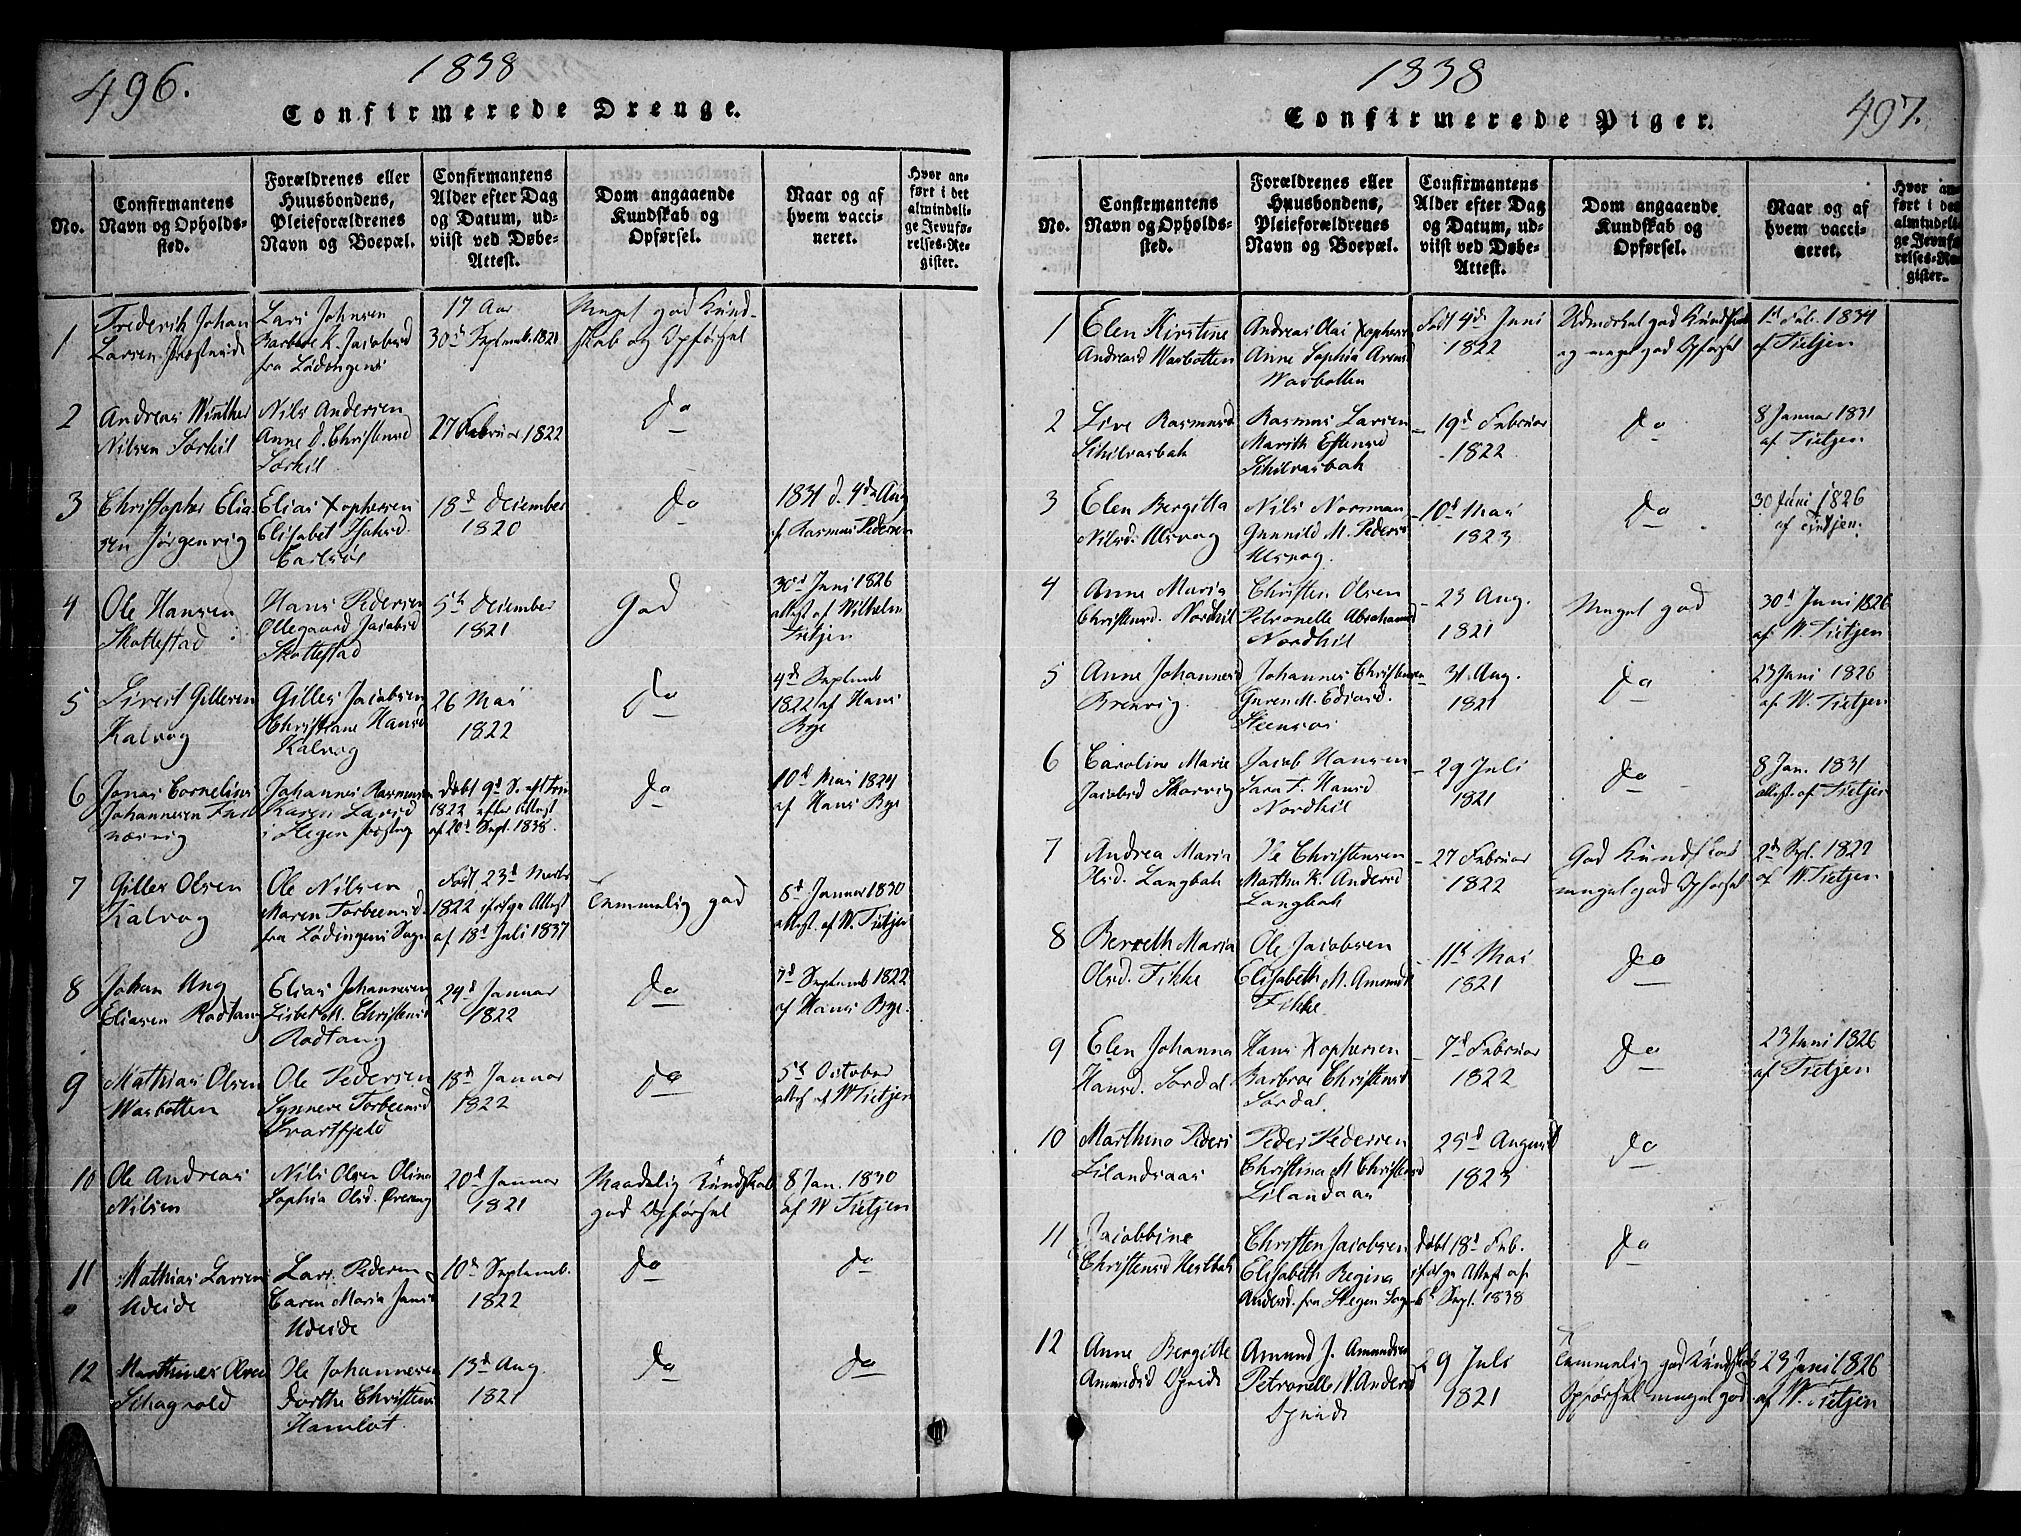 496.
1838
Confirmerede Drenge.
No.
Confirmantens
Navn og Opholds-
sted.
Forældrenes eller
Huusbondens,
Pleieforældrenes
Navn og Boepæl.
Confirmantens
Alder efter Dag
og Datum, ud-
viist ved Døbe-
Attest.
Dom angaaende
Kundskab og
Opførsel.
Naar og af
hvem vacci-
neret.
Hvor an-
ført i det
almindeli-
ge Jevnfø-
relses-Re-
gister.
1
Frederik Johan
Larsen
Lars Johnsen
Barbroe K. Jacobsd
fra Lødingens
17 Aar
30d Septemb. 1821
Meget god Kund-
skab og Opførsel
2
Andreas Winther
Nilsen Sørkil
Nils Andersen
Anne d. Christensd
Sørkil
27 Februar 1822
do
3
Christopher Elia-
sen Jørgenvig
Elias Xophersen
Elisabet
18d December
1820
do
1831 d. 4de Aug
af Rasmus Pedersen
4
Ole Hansen
Skottestad
Hans Pedersen
Ollegaard Jacobsd
Skottestad
5th December
1821
God
30d Juni 1826
attest af Wilhelm
Tietjen
5
Sivert Gillesen
Kalvog
Gilles Jacobsen
Christiane Hansd
Kalvog
26 Mai
1822
do
4de Septemb
1822 af Hans
Bye
6
Jonas Cornelius
Johannesen
Johannes Rasmusen
Karen Larsd
i Stegen
døbt 9d S. eft Trin
1822 efter Attest
af 20d Sept. 1838.
do
10d Mai 1824
af Hans Bye
7
Gilles Olsen
Kalvog
Ole Nilsen
Maren Torbeensd
fra Lødingens Sogn
Født 23d
1822 ifølge Attest
af 18d Juli 1837
Temmelig god
8d Januar 1830
attest. af W. Tietjen
8
Johan Ung
Eliasen Rødtang
Elias Johannesen
Lisbet M. Christensd
Rødtang
24d Januar
1822
do
7d Septemb 1822
af Hans Bye.
9
Mathias Olsen
Wasbotten
Ole Pedersen
Synneve Torbeensd
Svartfjeld
18d Januar
1822
do
5th October
attest af W Tietjen
10
Ole Andreas
Nilsen
Nils Olsen Olina
Sophia Olsd.
20d Januar
1821
Maadelig Kundskab
god Opførsel
8 Jan. 1830
af W Tietjen
11
Mathias Larsen
Udeide
Lars Pedersen
Caren Maria Jansd
Udeide
10d Septemb.
1822
do
do
12
Marthines Olsen
Skagvold
Ole Johannesen
Dorthe Christensd
Hamløt
13d Aug
1821
do
do
1838
Confirmerede Piger.
497.
No.
Confirmantens
Navn og Opholds-
sted.
Forældrenes eller
Huusbondens,
Pleieforældrenes
Navn og Boepæl.
Confirmantens
Alder efter Dag
og Datum, ud-
viist ved Døbe-
Attest.
Dom angaaende
Kundskab og
Opførsel.
Naar og af
hvem vacci-
neret.
Hvor an-
ført i det
almindeli-
ge Jevnfø-
relses-Re-
gister.
1
Elen Kirstine
Andreasd Wasbotten
Andreas Olai Xophersen
Anne Sophia
Wasbotten
Født 4d Juni
1822
Udmærket god Kundskab
og meget god Opførsel
1st Feb. 1834
af Tietjen
2
Live Rasmusd
Schilvasbak
Rasmus Larsen
Marith Estensd
Schilvasbak
19d Februar
1822
do
8 Januar 1831
af Tietjen
3
Elen Bergitta
Nilsd. Ulsvog
Nils Norman
Gunnild M. Pedersd
Ulsvog.
10d Mai
1823
do
30 Juni 1826
af Tietjen.
4
Anne Maria
Christensd. Nordkil
Christen Olsen
Petronelle Abrahamsd
Nordkil
23 Aug.
1821
Meget god
30d Juni 1826
af W. Tietjen
5
Anne Johannesd
Brenvig.
Johannes Christensen
Guren M. Ediasd.
31 Aug.
1821
do
23 Juni 1826
af W. Tietjen
6
Caroline Marie
Jacobsd Skorvig
Jacob Hansen
Sara F. Hansd
Nordkil
29 Juli
1821
do
8 Jan. 1831
attest. af Tietjen
7
Andrea Maria
Olsd. Langbak
Ole Christensen
Martha K. Andersd
Langbak
27 Februar
1822
God Kundskab
meget god Opførsel
2d Sept. 1822
af W. Tietjen
8
Bereth Maria
Olsd. Fikke
Ole Jacobsen
Elisabeth M. Amundsd
Fikke
11th Mai
1821
do
9
Elen Johanna
Hansd. Sørdal
Hans Xophersen
Barbroe Christensd
Sørdal.
7d Februar
1822
do
23 Juni 1826
af Tietjen
10
Marthina Peders
Lilandsaas
Peder Pedersen
Christina M Christensd
Lilandsaas
25d August
1823
do
11
Jacobbine
Christensd Hestbak
Christen Jacobsen
Elisabeth Regina
Andersd. fra Stegen Sogn
døbt 18d Feb.
ifølge Attest af
6th Sept. 1838
do
12
Anne Bergitte
Amundsd Opeide
Amund J. Amundsen
Petronelle W. Andersd
Opeide
29 Juli
1821
Temmelig god Kundskab
Opførsel meget god
23 Juni 1826
af W. Tietjen